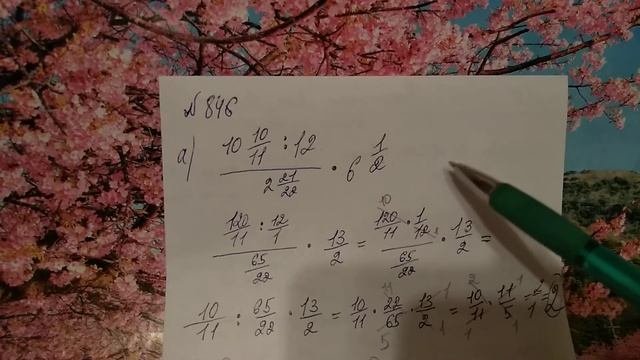 № 846
а) (10 10/11 : 12) / (2 21/22) · 6 1/2
(120/11 : 12/1) / (65/22) · 13/2 = (120/11 · 1/12) / (65/22) · 13/2 =
10/11 : 65/22 · 13/2 = 10/11 · 22/65 · 13/2 = 10/11 · 11/5 = 2/1 = 2